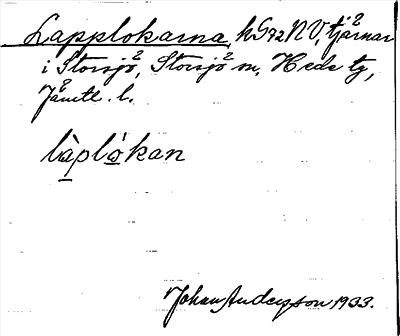 Lapplokarna, kG92NV, tjärnar
i Storsjö, Storsjö sn, Hede tg,
Jämtl. l.
làplò̱kan
Johan Anderson 1933.